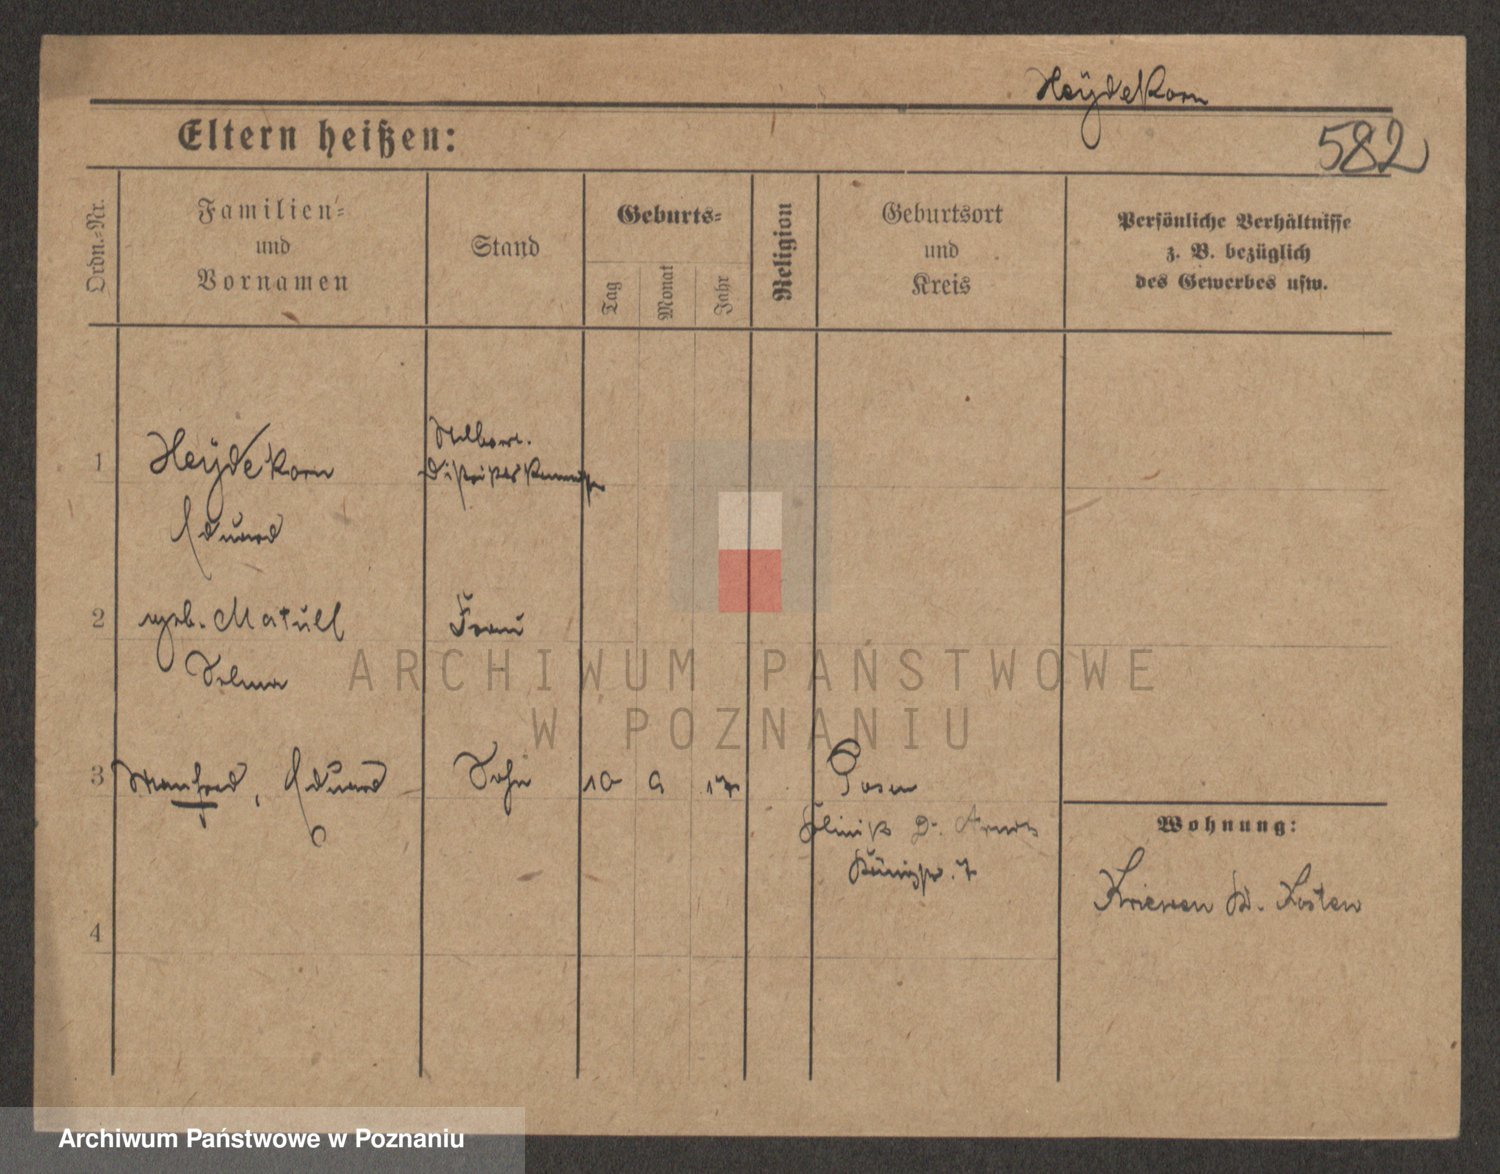 Heÿdekorn
582
Eltern heißen:
Ordn.-Nr.
Familien-
und
Vornamen
Stand
Geburts-
Tag
Monat
Jahr
Religion
Geburtsort
und
Kreis
Persönliche Verhältnisse
z. B. bezüglich
des Gewerbes usw.
1
Heÿdekorn
Eduard
Distrikts
2
geb. Matull
Selma
Frau
3
Manfred, Eduard
Sohn
10
9
17
Posen
Klinik Dr.
Königstr. 7
Wohnung:
Kriewen Kr. Kosten
4
ARCHIWUM PAŃSTWOWE
W POZNANIU
Archiwum Państwowe w Poznaniu